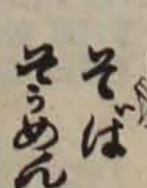 そば
そうめん